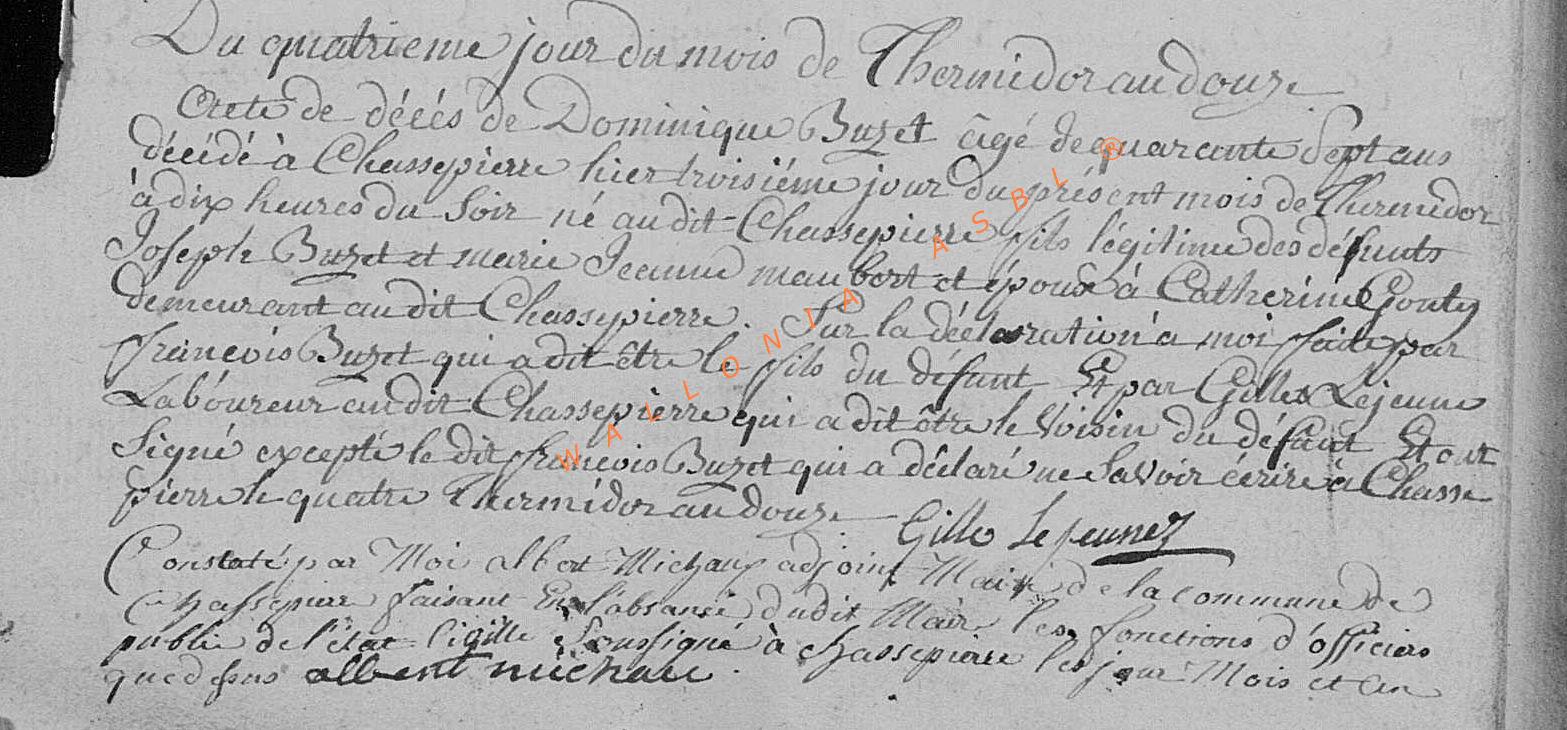 Du quatrieme jour du mois de Thermidor an douze
Acte de décés de Dominique Buzet âgé de quarante Sept ans
décédé à Chassepierre hier troisiéme jour du présent mois de Thermidor
à dix heures du Soir né au dit Chassepierre fils légitime des défunts
Joseph Buzet et marie Jeanne maubert et époux à Catherine Gouty
demeurant au dit Chassepierre. Sur la déclaration à moi faite par
françois Buzet qui a dit être le fils du défunt Et par Gilles Lejeune
Laboureur au dit Chassepierre qui a dit être le Voisin du défunt Et ont
Signé excepté le dit françois Buzet qui a déclaré ne Savoir écrire à Chasse
pierre le quatre Thermidor an douze Gille Lejeune
Constaté par Moi albert Michaux adjoint Maire de la commune de
Chassepierre faisant En l'absance dudit Maire les fonctions d'officiers
public de l'état Cigille Soussigné à chassepierre les jour Mois et an
que dessus albert michaux
WALLONIA ASBL ®